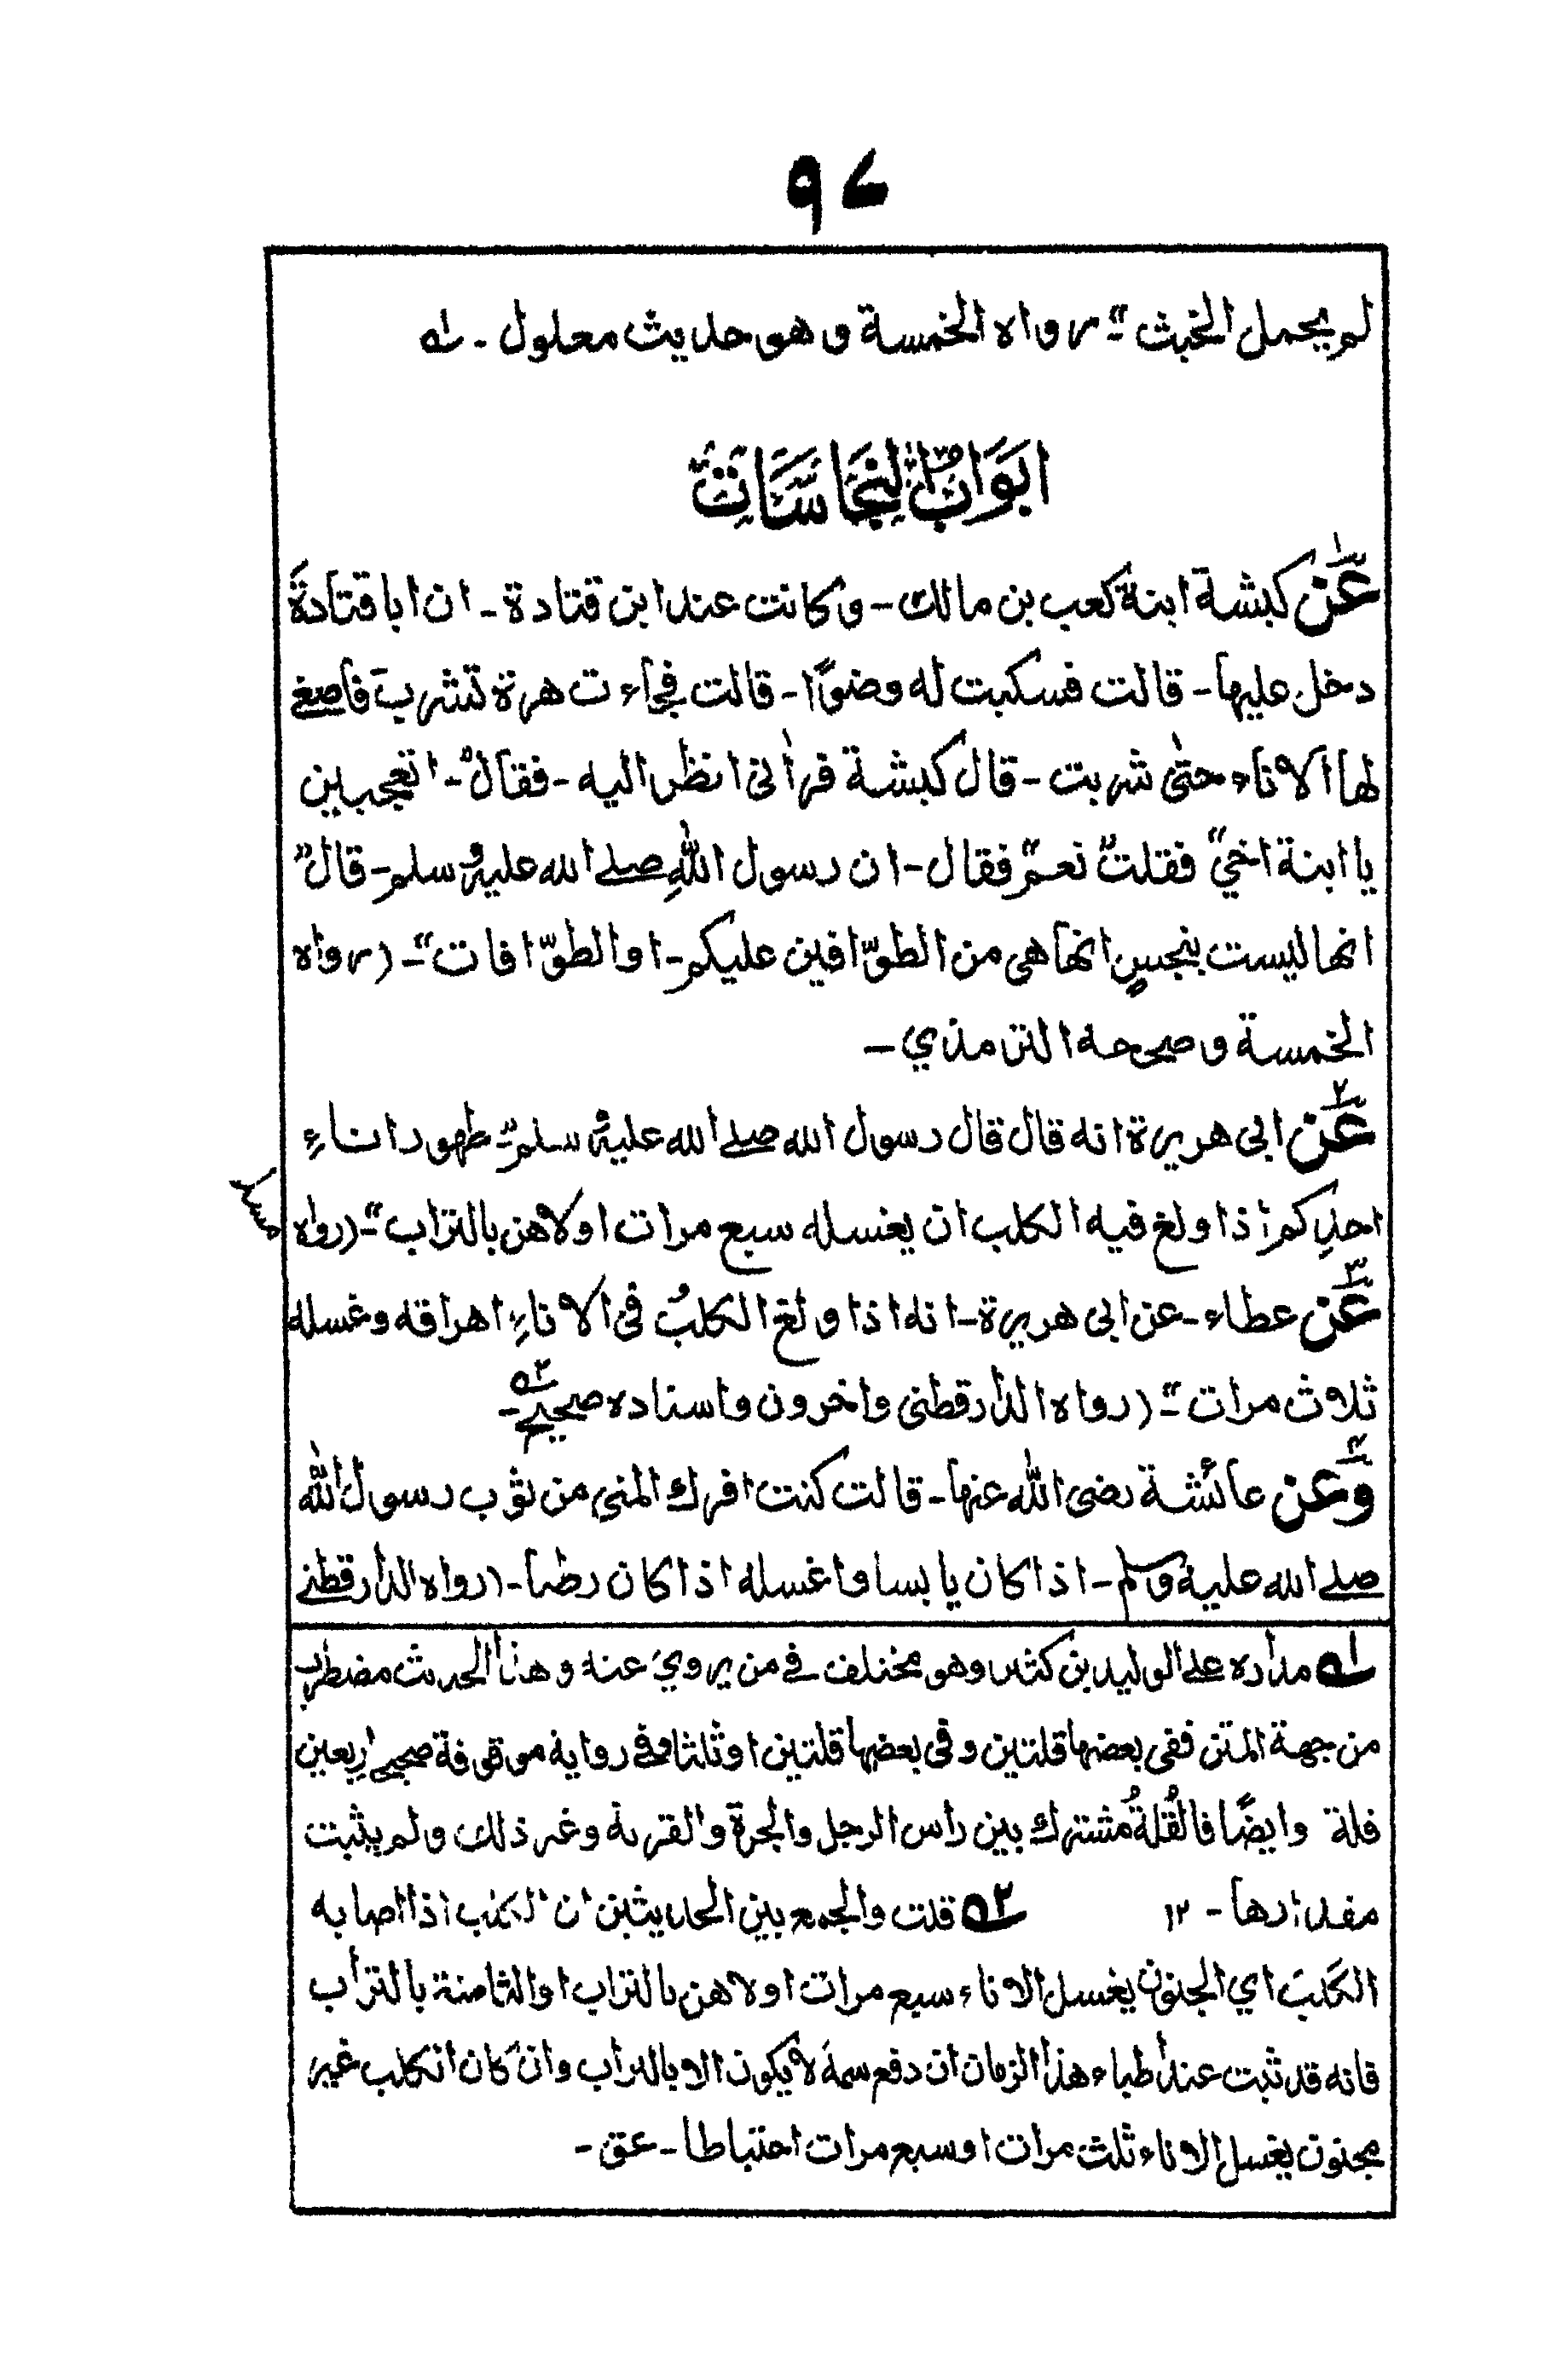 ٩٧
لم يحمل الخبث"ـ رواه الخمسة وهو حديث معلول ـ ؎۱
ابواب النجاسات
۱ عن كبشة ابنة كعب بن مالك ـ وكانت عند ابن قتادة ـ ان ابا قتادة
دخل عليها ـ قالت فسكبت له وضوًا ـ قالت فجاءت هرة تشرب فاصغى
لها الاناء حتى شربت ـ قال كبشة فرآنى انظر اليه ـ فقال"ـ اتعجبين
يا ابنة اخي" فقلت" نعم" فقال ـ ان رسول الله صلے الله عليه وسلم ـ قال"
انها ليست بنجسٍ انها هى من الطوّافين عليكم ـ او الطوّافات"ـ (رواه
الخمسة وصححه الترمذي ـ
۲ عن ابى هريرة انه قال قال رسول الله صلے الله عليه وسلم"ـ طهور اناءِ
احدِكم اذا ولغ فيه الكلب ان يغسله سبع مرات اولاهن بالتراب"ـ (رواه مسلم
۳ عن عطاء ـ عن ابى هريرة ـ انه اذا ولغ الكلبُ فى الاناءِ اهراقه وغسله
ثلاث مرات"ـ (رواه الدارقطنى واخرون واسناده صحيح ـ ؎۲
۴ وعن عائشة رضى الله عنها ـ قالت كنت افرك المنى من ثوب رسول الله
صلے الله عليه وسلم ـ اذا كان يابسا واغسله اذا كان رطبا ـ (رواه الدارقطنے
؎۱ مداره على الوليد بن كثير وهو مختلف فے من يروي عنه وهذا الحديث مضطرب
من جهة المتن ففى بعضها قلتين وفى بعضها قلتين او ثلثا وفے رواية موقوفة صحيح اربعين
قلة وايضًا فالقُلةُ مشترك بين راس الرجل والجرة والقربة وغير ذلك ولم يثبت
مقدارها ـ ۱۲ ؎۲ قلت والجمع بين الحديثين ان الكلب اذا اصابه
الكَلَب اي الجنون يغسل الاناء سبع مرات اولاهن بالتراب او الثامنة بالتراب
فانه قد ثبت عند اطباء هذا الزمان ان دفع سمه لا يكون الا بالتراب وان كان الكلب غير
مجنون يغسل الاناء ثلث مرات او سبع مرات احتياطا ـ عق ـ